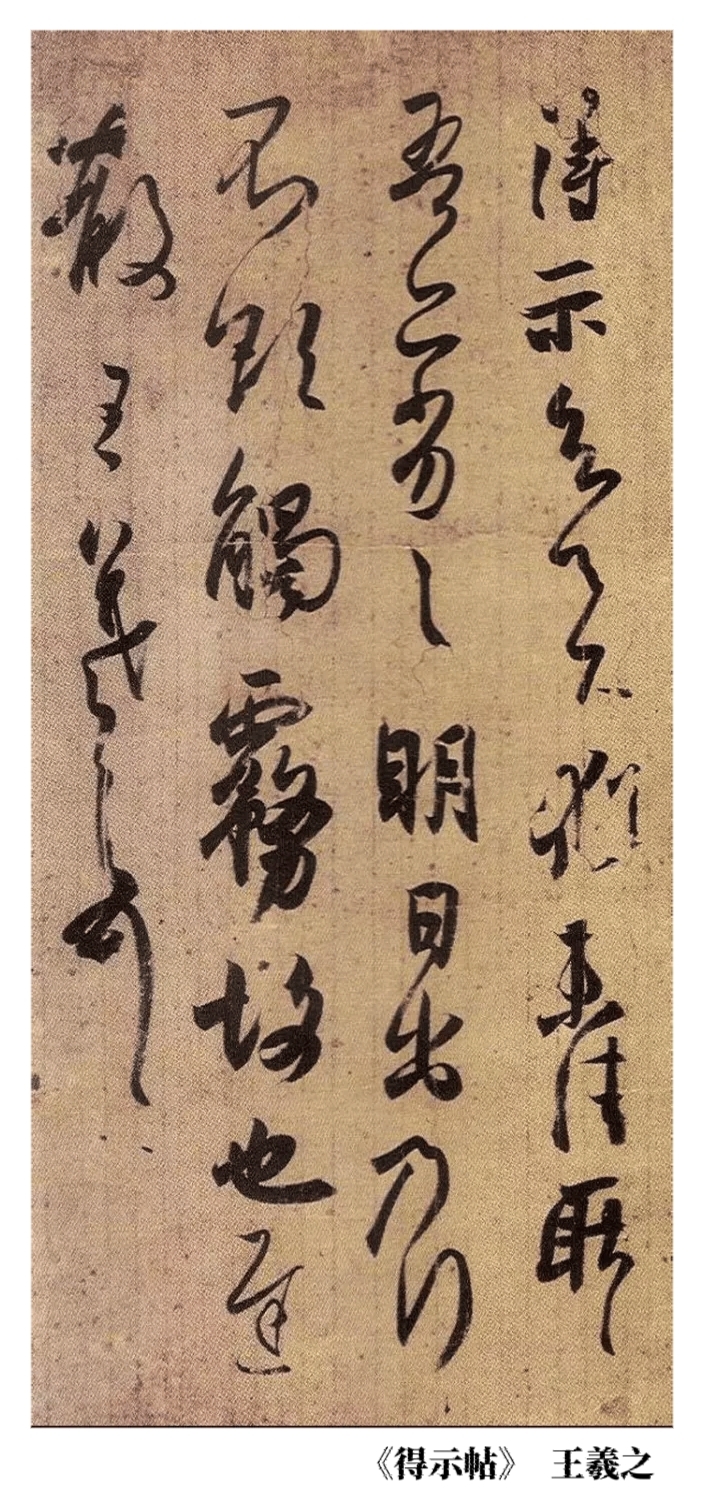 得示知足下猶未佳耿
吾亦劣劣明日出乃行
不欲觸霧故也遲
散王羲之頓首
《得示帖》 王羲之